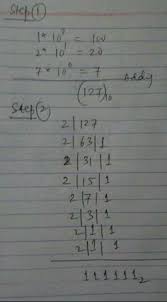 Step ①
1 * 10² = 100
2 * 10¹ = 20
7 * 10⁰ = 7
Addy
(127)₁₀
Step ②
2 | 127
2 | 63 | 1
2 | 31 | 1
2 | 15 | 1
2 | 7 | 1
2 | 3 | 1
2 | 1 | 1
2 | 1 | 1
1 1 1 1 1 1₂